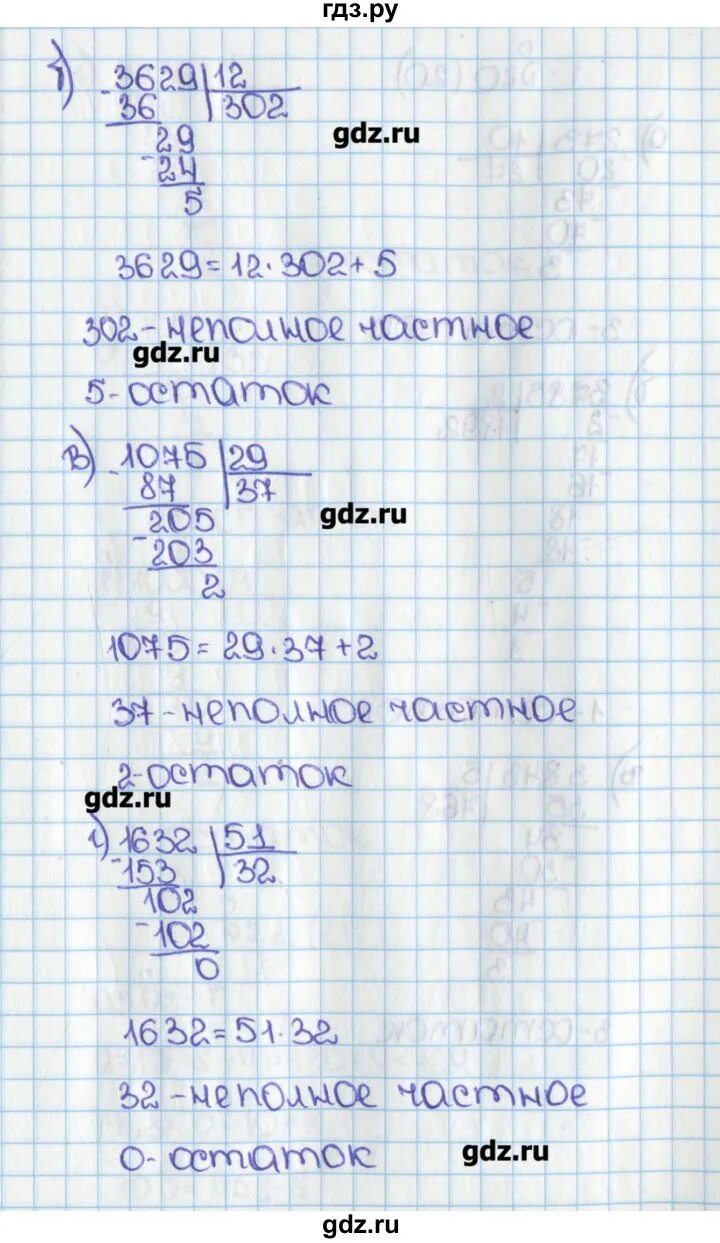 гдз.ру
б) 3629 12
36 302
gdz.ru
29
24
5
3629=12·302+5
302-неполное частное
gdz.ru
5-остаток
в) 1075 29
87 37
205
gdz.ru
203
2
1075=29·37+2
37-неполное частное
2-остаток
gdz.ru
г) 1632 51
153 32
102
102
0
1632=51·32
32-неполное частное
0-остаток
gdz.ru
gdz.ru